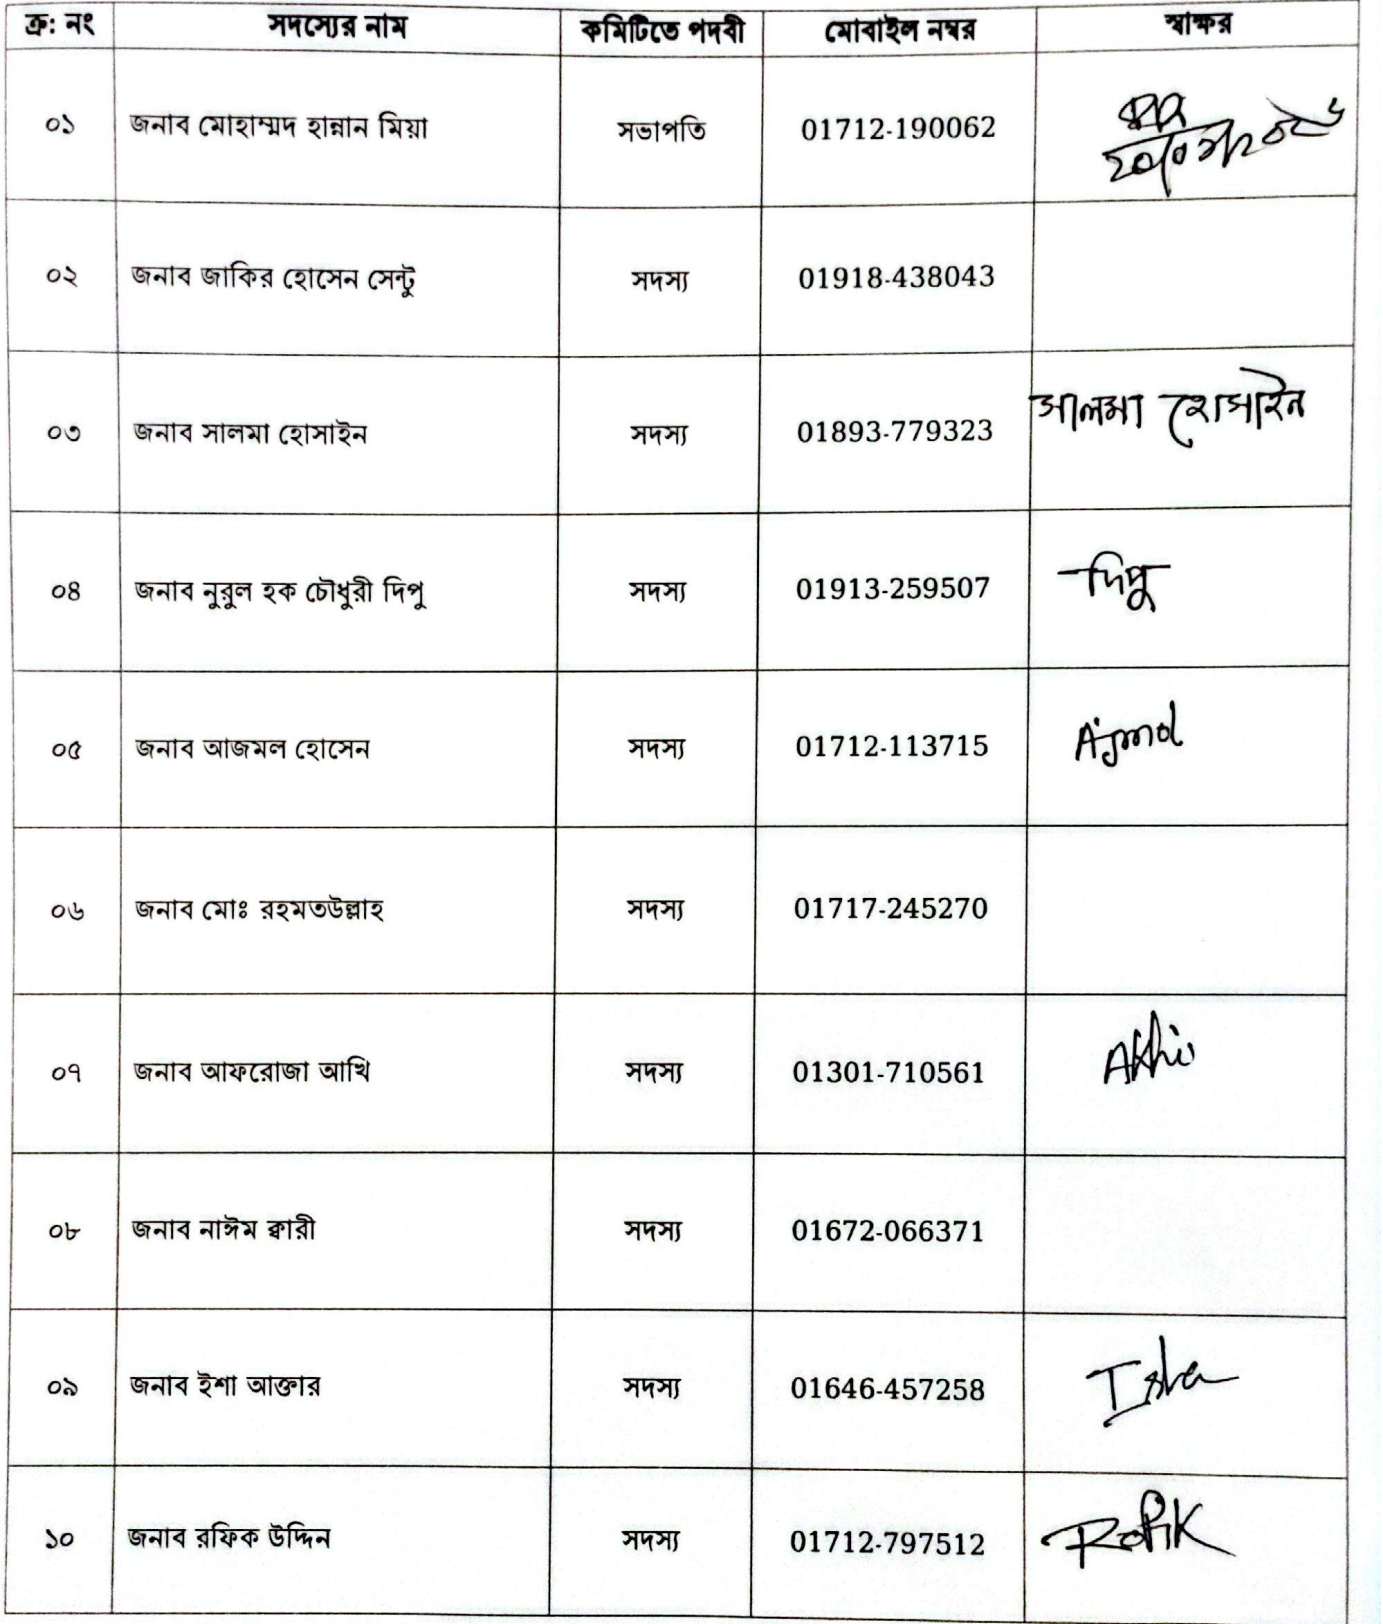 ক্র: নং সদস্যের নাম কমিটিতে পদবী মোবাইল নম্বর স্বাক্ষর
০১ জনাব মোহাম্মদ হান্নান মিয়া সভাপতি 01712-190062
০২ জনাব জাকির হোসেন সেন্টু সদস্য 01918-438043
০৩ জনাব সালমা হোসাইন সদস্য 01893-779323 সালমা হোসাইন
০৪ জনাব নুরুল হক চৌধুরী দিপু সদস্য 01913-259507 দিপু
০৫ জনাব আজমল হোসেন সদস্য 01712-113715 Ajmol
০৬ জনাব মোঃ রহমতউল্লাহ সদস্য 01717-245270
০৭ জনাব আফরোজা আখি সদস্য 01301-710561 Akhi
০৮ জনাব নাঈম ক্বারী সদস্য 01672-066371
০৯ জনাব ইশা আক্তার সদস্য 01646-457258 Isha
১০ জনাব রফিক উদ্দিন সদস্য 01712-797512 Rafik